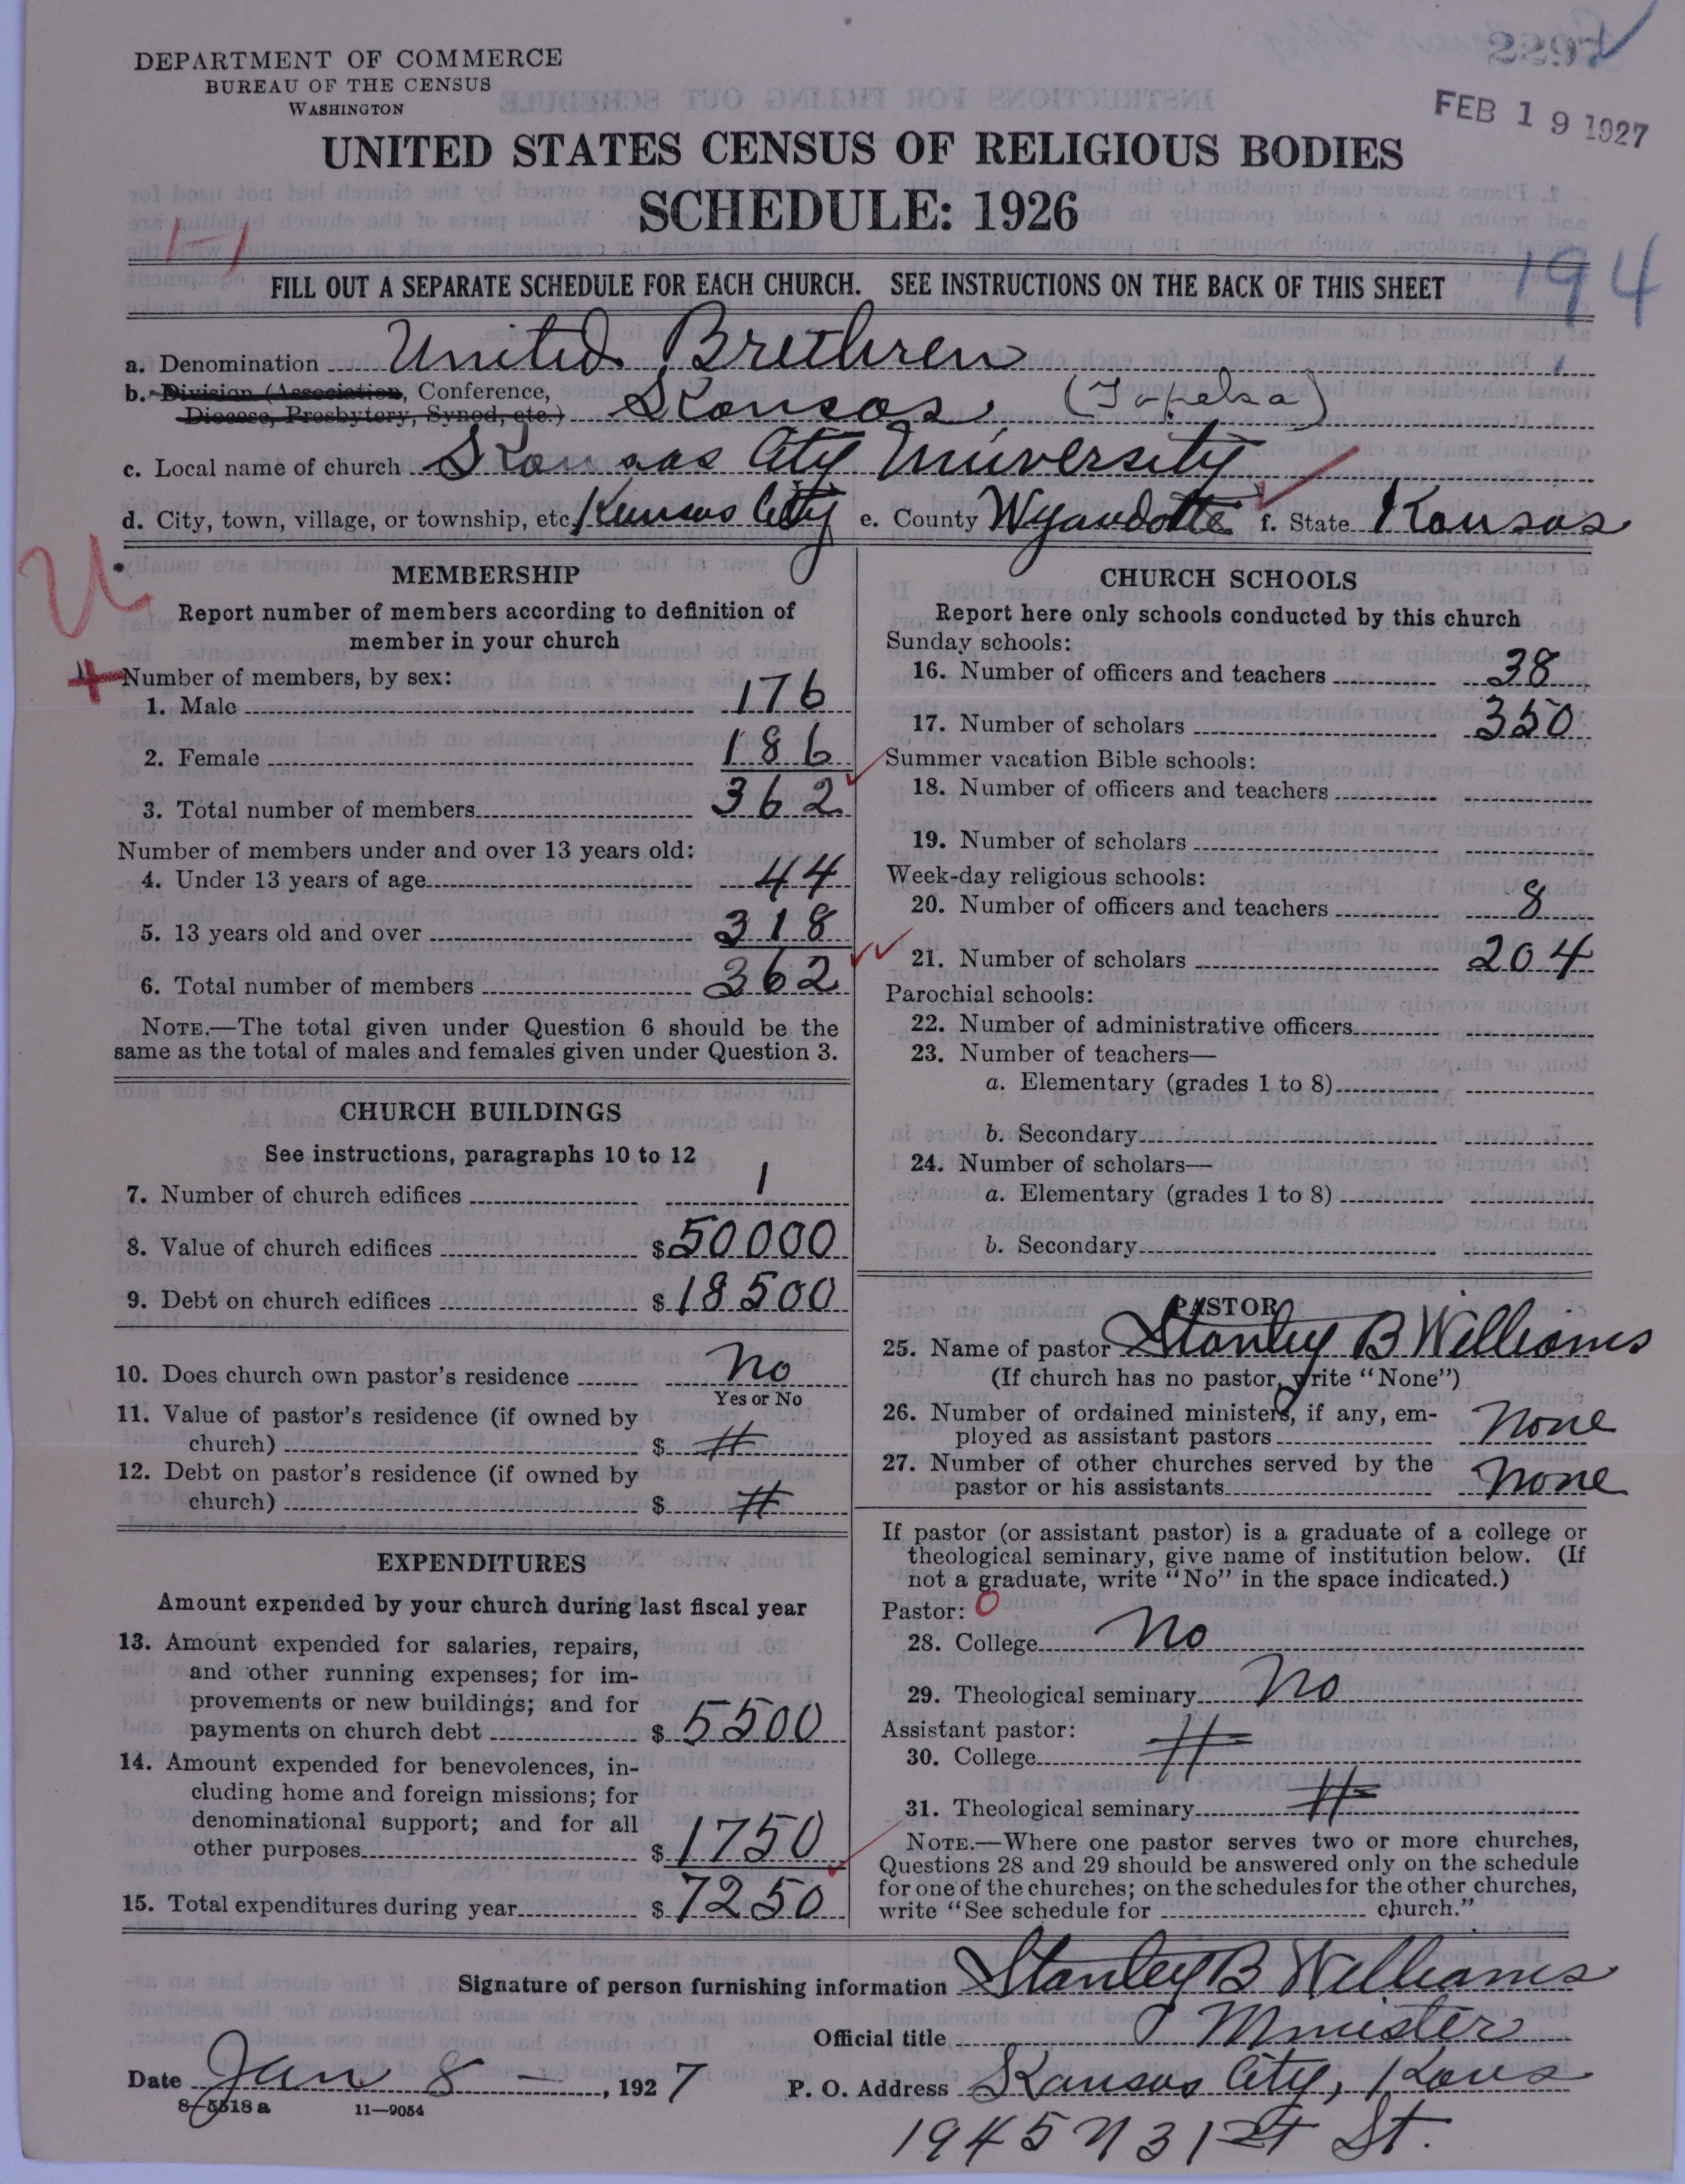 DEPARTMENT OF COMMERCE
BUREAU OF THE CENSUS
WASHINGTON
FEB 19 1927
UNITED STATES CENSUS OF RELIGIOUS BODIES
SCHEDULE: 1926
1-1
194
FILL OUT A SEPARATE SCHEDULE FOR EACH CHURCH. SEE INSTRUCTIONS ON THE BACK OF THIS SHEET
a. Denomination United Brethren
b. Division (Association, Conference,
Diocese, Presbytery, Synod, etc.) Kansas, (Topeka)
c. Local name of church Kansas City University
d. City, town, village, or township, etc. Kansas City e. County Wyandotte f. State Kansas
MEMBERSHIP
Report number of members according to definition of
member in your church
Number of members, by sex:
1. Male 176
2. Female 186
3. Total number of members 362
Number of members under and over 13 years old:
4. Under 13 years of age 44
5. 13 years old and over 318
6. Total number of members 362
NOTE.—The total given under Question 6 should be the
same as the total of males and females given under Question 3.
CHURCH BUILDINGS
See instructions, paragraphs 10 to 12
7. Number of church edifices 1
8. Value of church edifices $50000
9. Debt on church edifices $18500
10. Does church own pastor's residence No
Yes or No
11. Value of pastor's residence (if owned by
church) $ #
12. Debt on pastor's residence (if owned by
church) $ #
EXPENDITURES
Amount expended by your church during last fiscal year
13. Amount expended for salaries, repairs,
and other running expenses; for im-
provements or new buildings; and for
payments on church debt $5500
14. Amount expended for benevolences, in-
cluding home and foreign missions; for
denominational support; and for all
other purposes $1750
15. Total expenditures during year $7250
CHURCH SCHOOLS
Report here only schools conducted by this church
Sunday schools:
16. Number of officers and teachers 38
17. Number of scholars 350
Summer vacation Bible schools:
18. Number of officers and teachers
19. Number of scholars
Week-day religious schools:
20. Number of officers and teachers 8
21. Number of scholars 204
Parochial schools:
22. Number of administrative officers
23. Number of teachers—
a. Elementary (grades 1 to 8)
b. Secondary
24. Number of scholars—
a. Elementary (grades 1 to 8)
b. Secondary
PASTOR
25. Name of pastor Stanley B Williams
(If church has no pastor, write "None")
26. Number of ordained ministers, if any, em-
ployed as assistant pastors None
27. Number of other churches served by the
pastor or his assistants None
If pastor (or assistant pastor) is a graduate of a college or
theological seminary, give name of institution below. (If
not a graduate, write "No" in the space indicated.)
Pastor: 0
28. College No
29. Theological seminary No
Assistant pastor:
30. College #
31. Theological seminary #
NOTE.—Where one pastor serves two or more churches,
Questions 28 and 29 should be answered only on the schedule
for one of the churches; on the schedules for the other churches,
write "See schedule for church."
Signature of person furnishing information Stanley B Williams
Official title Minister
Date Jan 8 —, 1927 P. O. Address Kansas City, Kans
8-5518a 11—9054
1945 N 31st St.